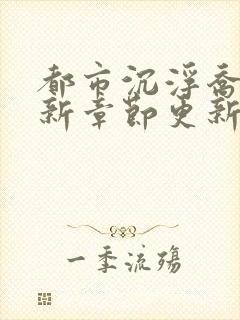 都市沉浮乔
新章节更新
一季流殇